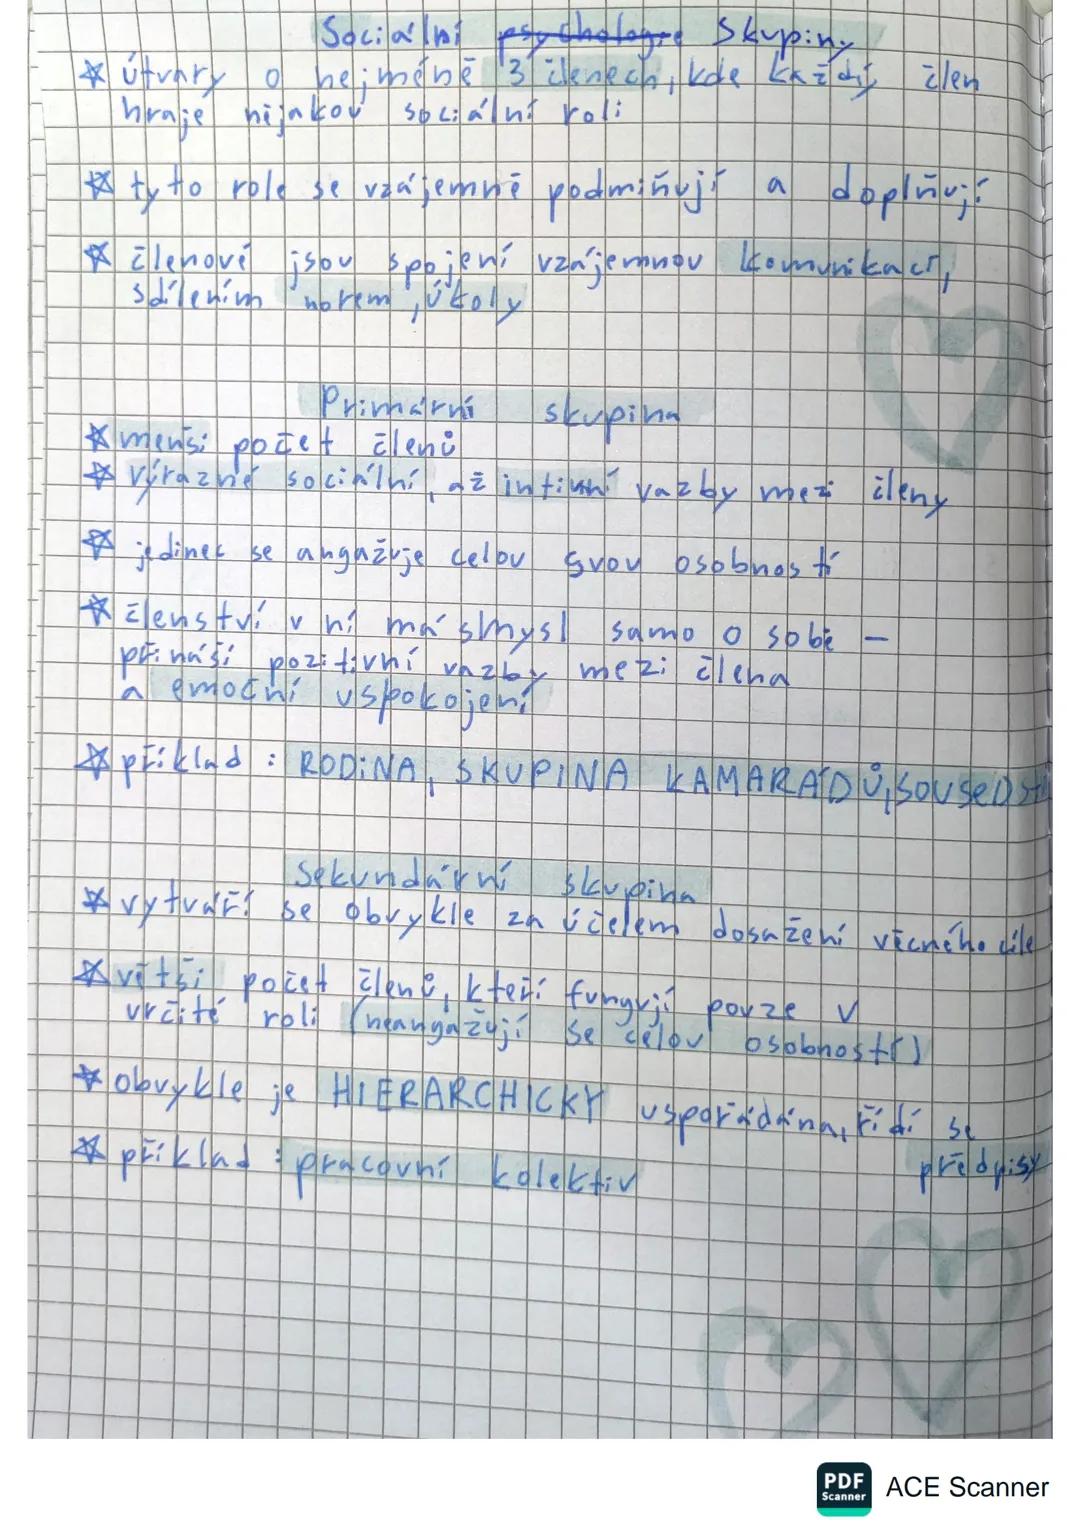 Sociální psychologie Skupiny
útvary o nejméně 3 členech, kde každý člen
hraje nějakou sociální roli
tyto role se vzájemně podmiňují a doplňují
členové jsou spojení vzájemnou komunikací,
sdílením norem, úkoly
Primární skupina
menší počet členů
výrazné sociální, až intimní vazby mezi členy
jedinec se angažuje celou svou osobností
členství v ní má smysl samo o sobě -
přináší pozitivní vazby mezi člena
a emoční uspokojení
příklad : RODINA, SKUPINA KAMARÁDŮ, SOUSEDSTVÍ
Sekundární skupina
vytváří se obvykle za účelem dosažení věcného cíle
větší počet členů, kteří fungují pouze v
určité roli (neangažují se celou osobností)
obvykle je HIERARCHICKY uspořádána, řídí se
předpisy
příklad : pracovní kolektiv
PDF
Scanner
ACE Scanner